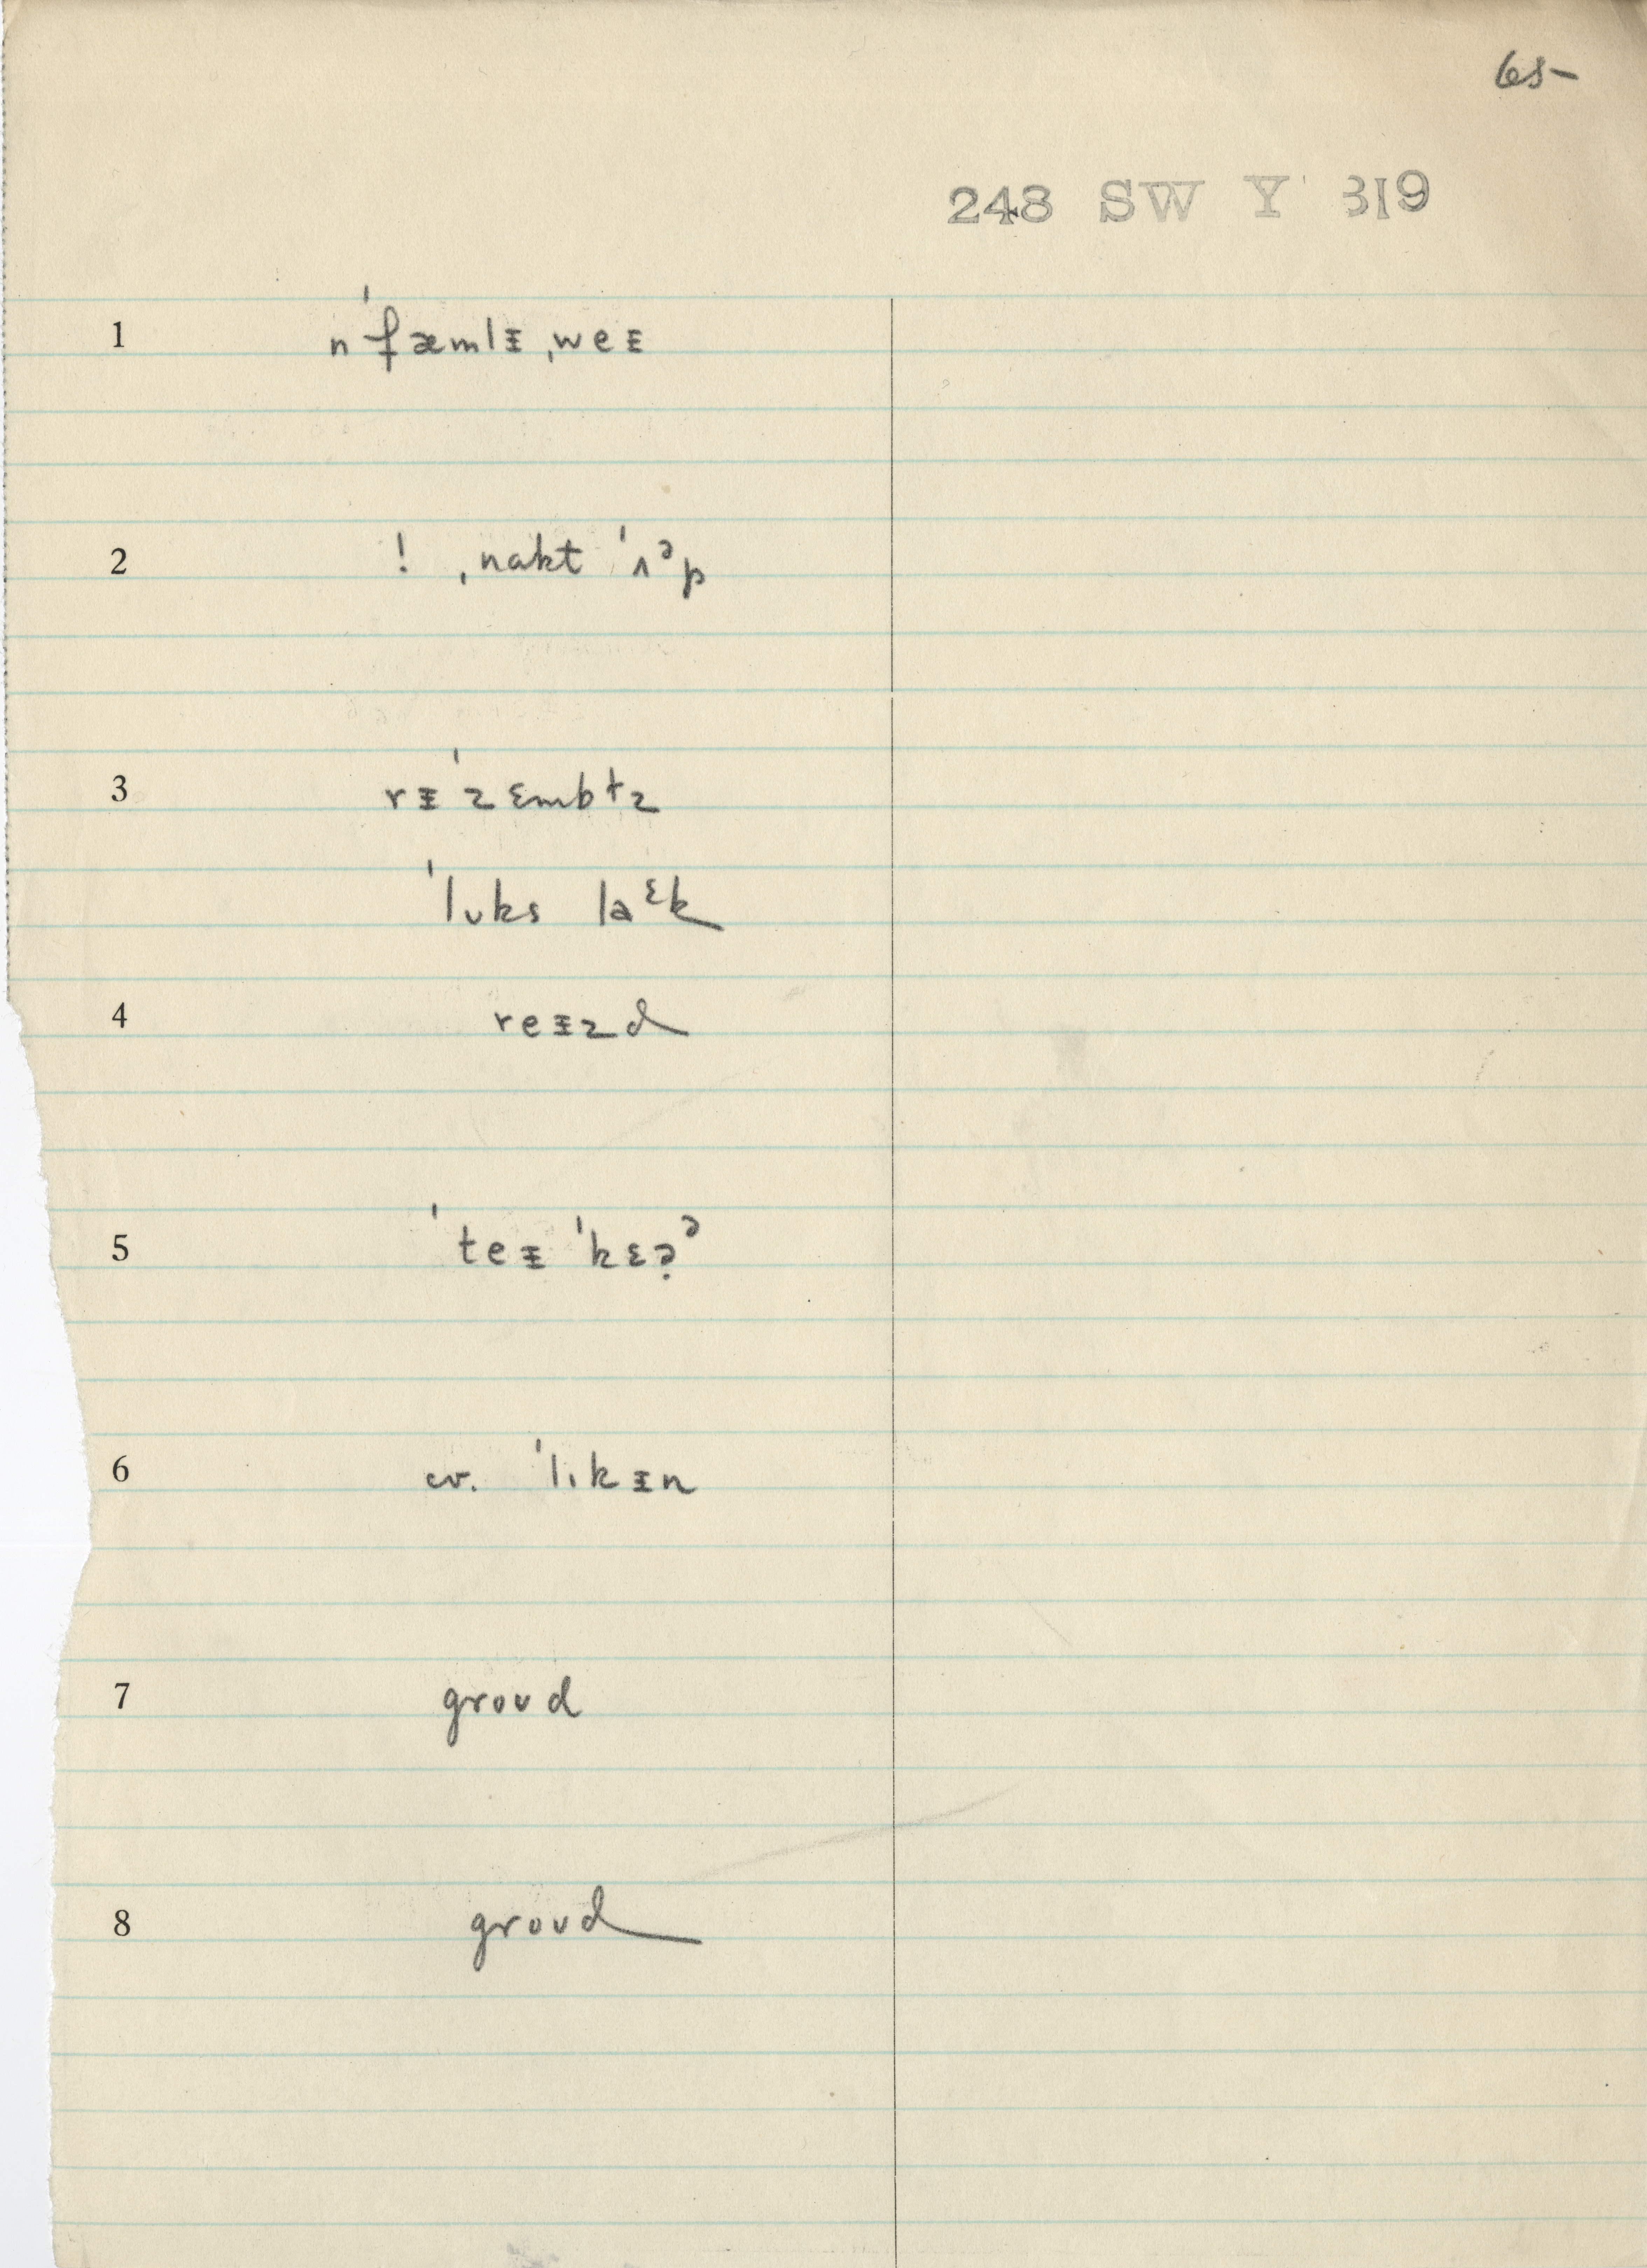 65-
248 SW Y 319
1 n ˈfæmlɪ ˌweɪ
2 ! ˌnakt ˈʌᵊp
3 rɪˈzɛmbɫz
ˈlʊks laᵋk
4 reɪzd
5 ˈteɪ ˈkɛə̣ᵊ
6 cv. ˈlɪ.kɪn
7 groʊd
8 groʊd